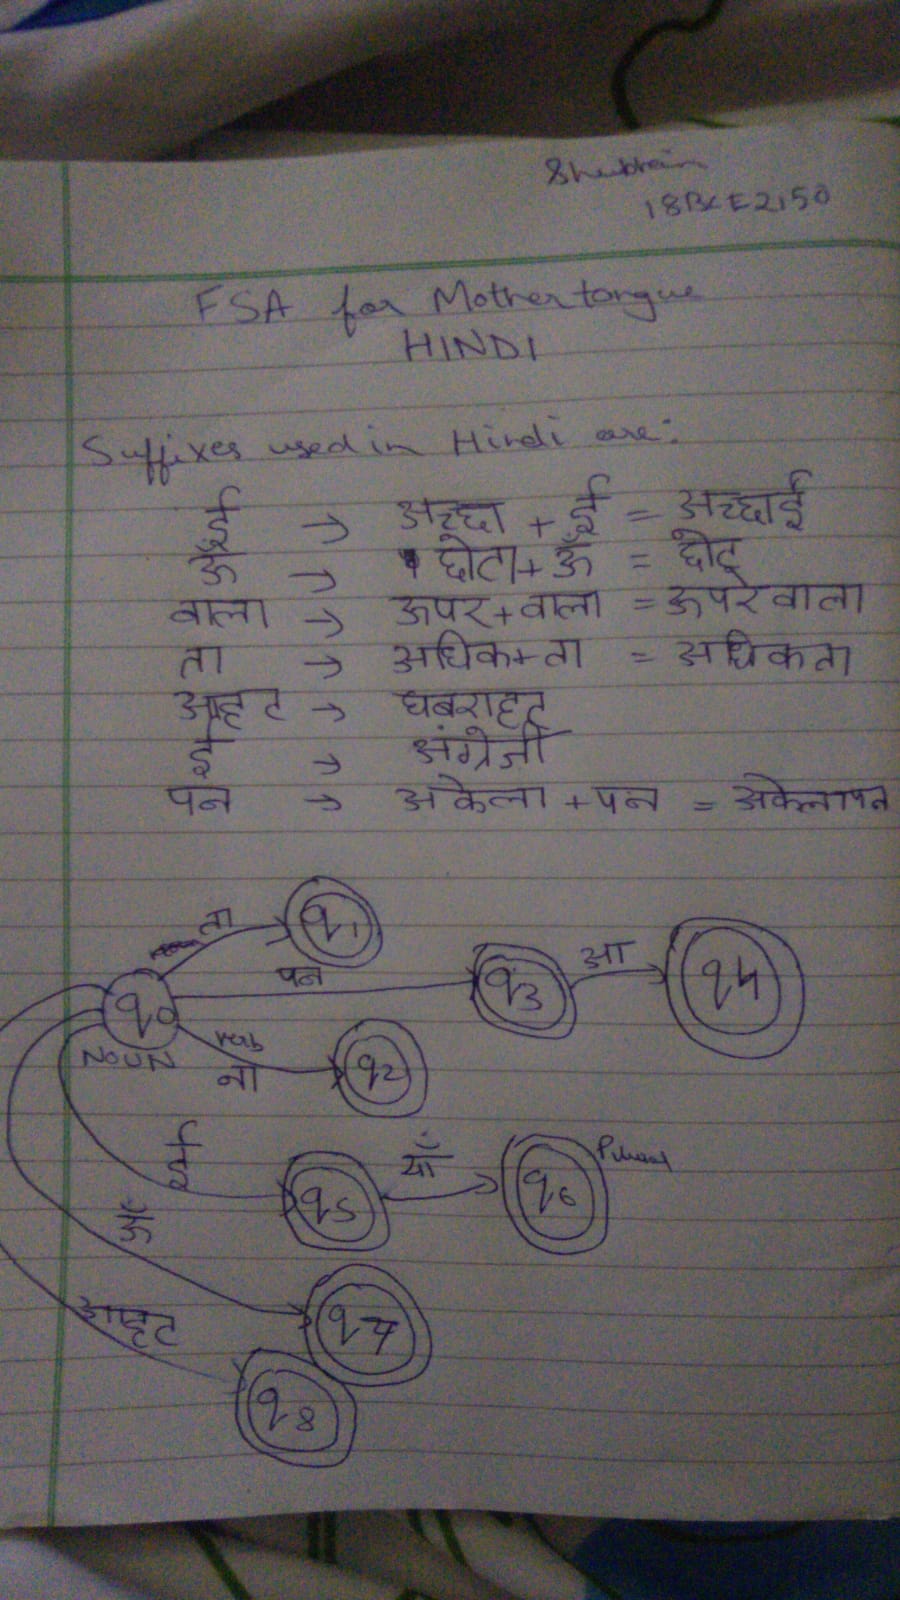 18BCE2150
FSA for Mother tongue
HINDI
Suffixes used in Hindi are:
ई → अच्छा + ई = अच्छाई
ऊँ → छोटा + ऊँ = छोटू
वाला → ऊपर + वाला = ऊपरवाला
ता → अधिक + ता = अधिकता
आहट → घबराहट
ई → अंग्रेजी
पन → अकेला + पन = अकेलापन
ता
q1
पन
q3
आ
q4
q0
NOUN
verb
ना
q2
ई
q5
याँ
q6
Plural
ऊँ
q7
आहट
q8